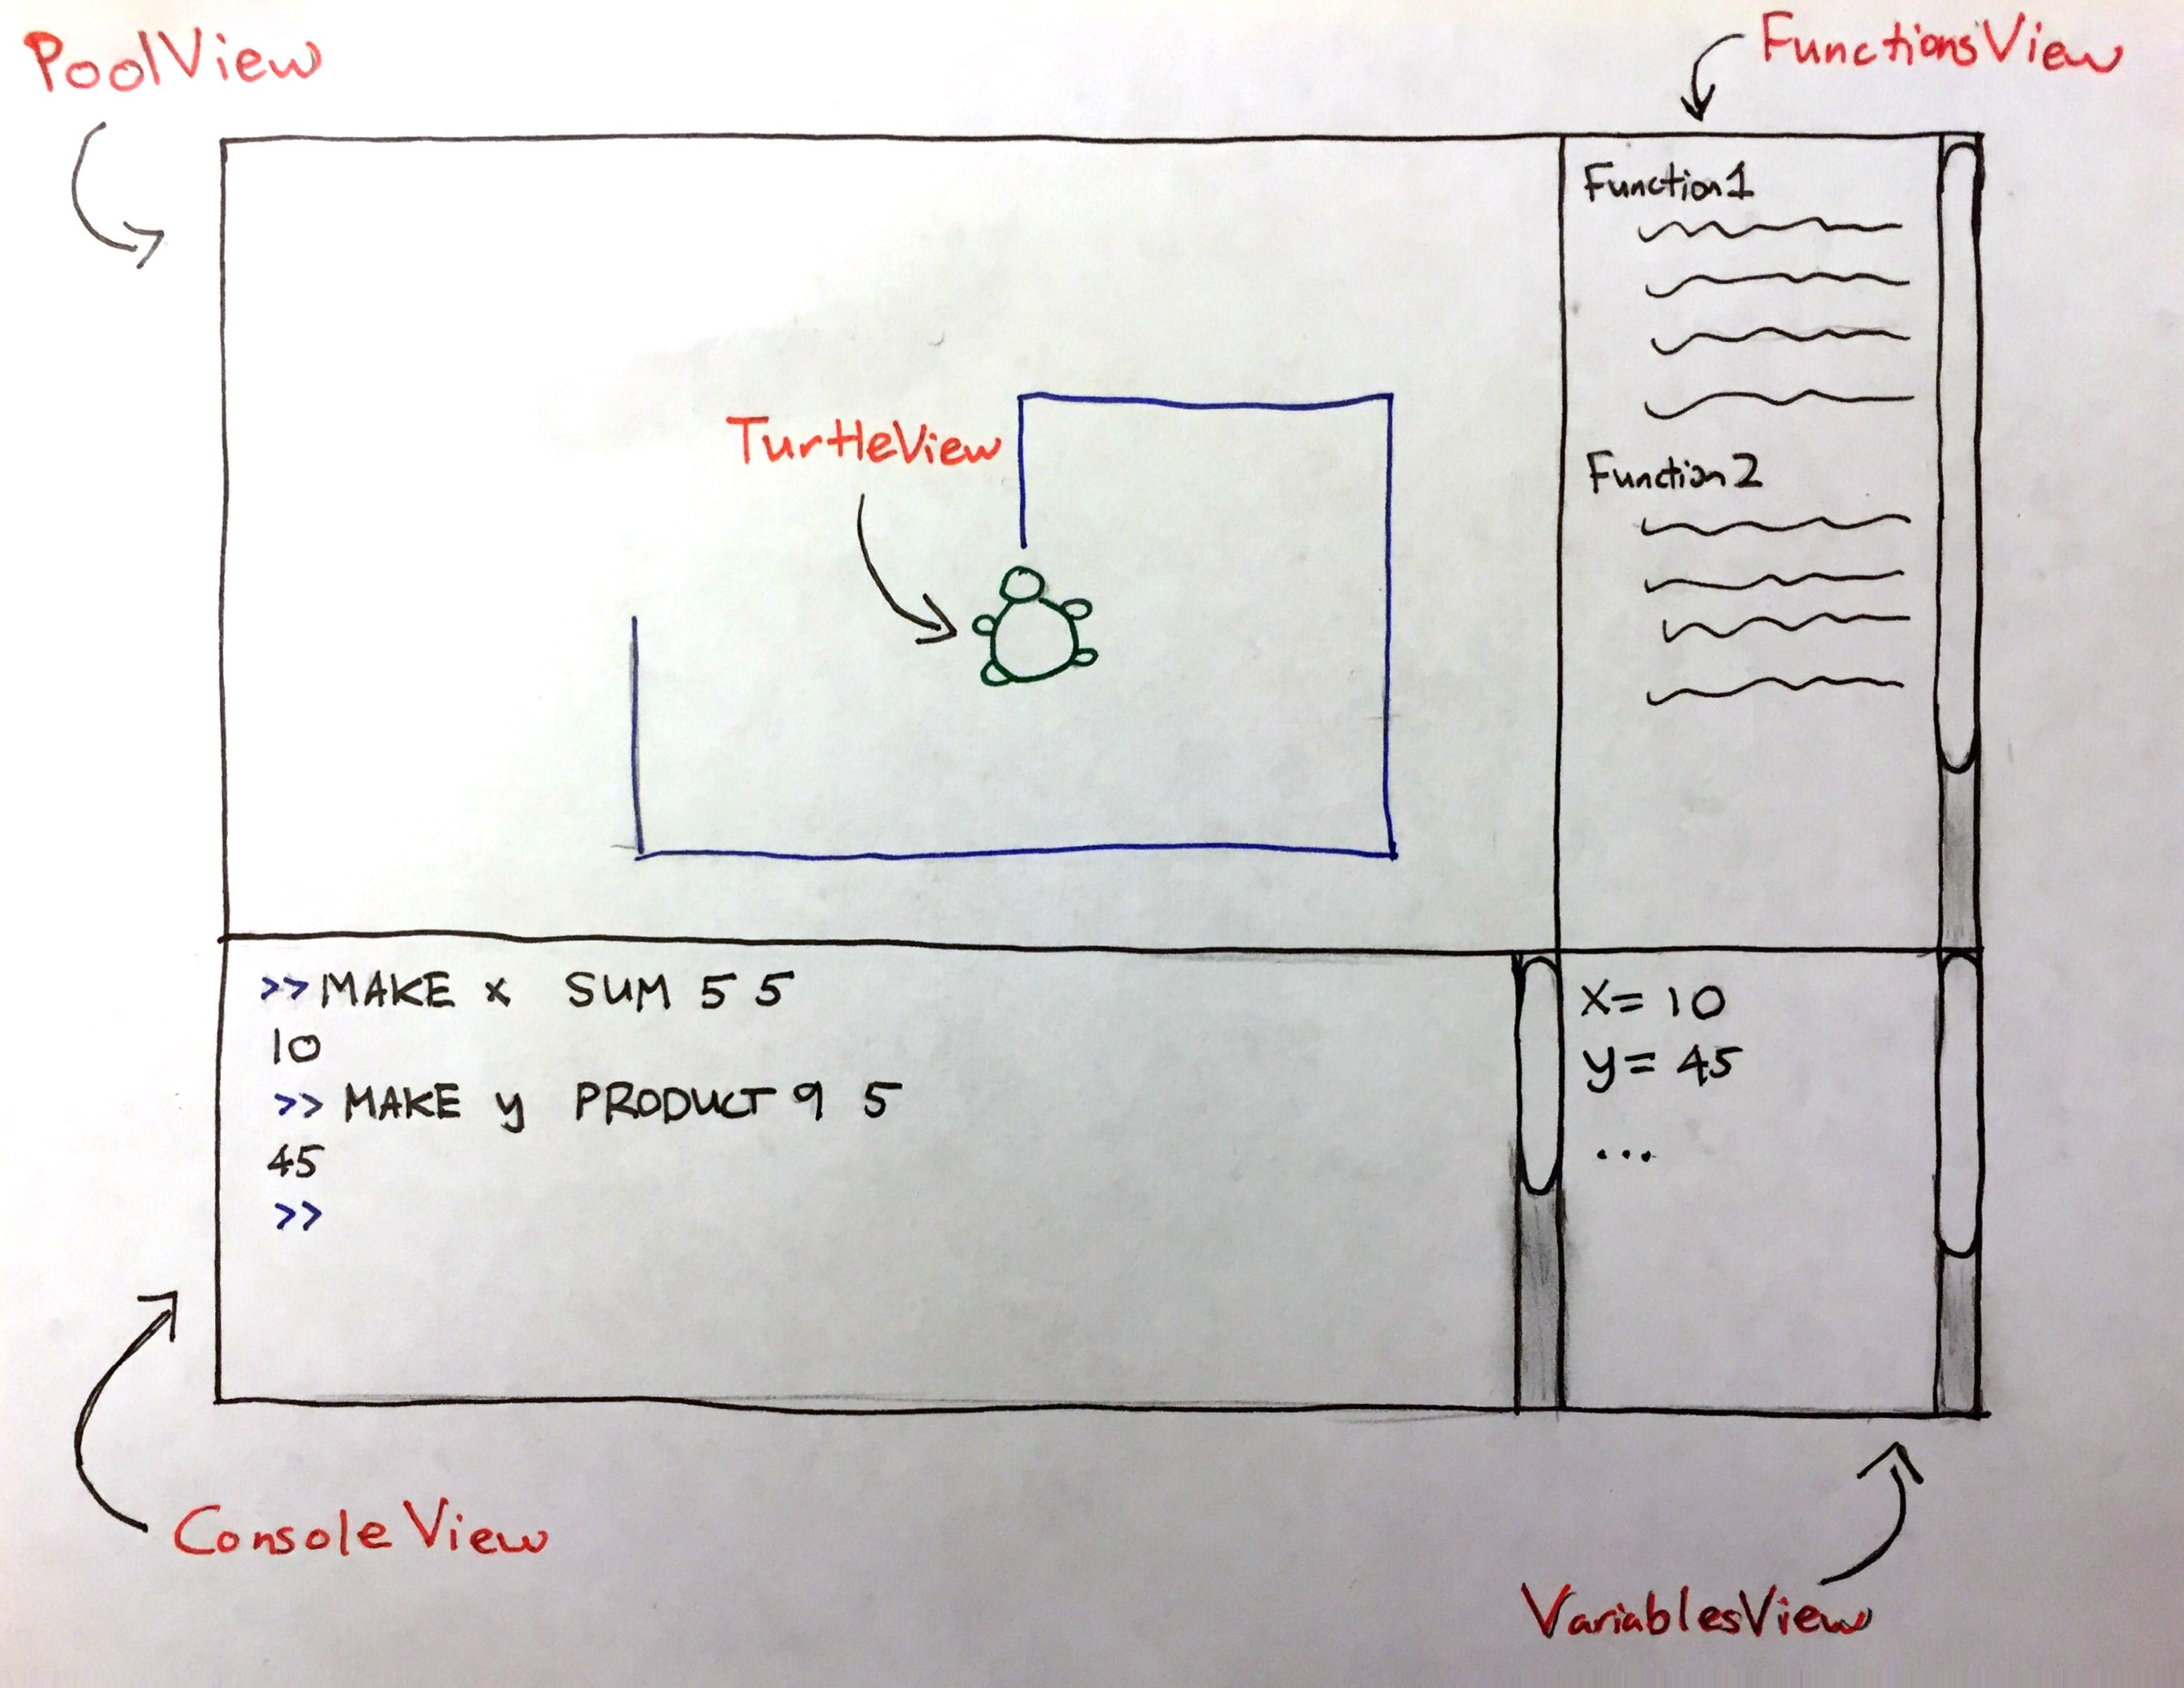 PoolView
FunctionsView
Function1
TurtleView
Function2
>> MAKE x SUM 5 5
10
>> MAKE y PRODUCT 9 5
45
>>
x= 10
y= 45
...
ConsoleView
VariablesView